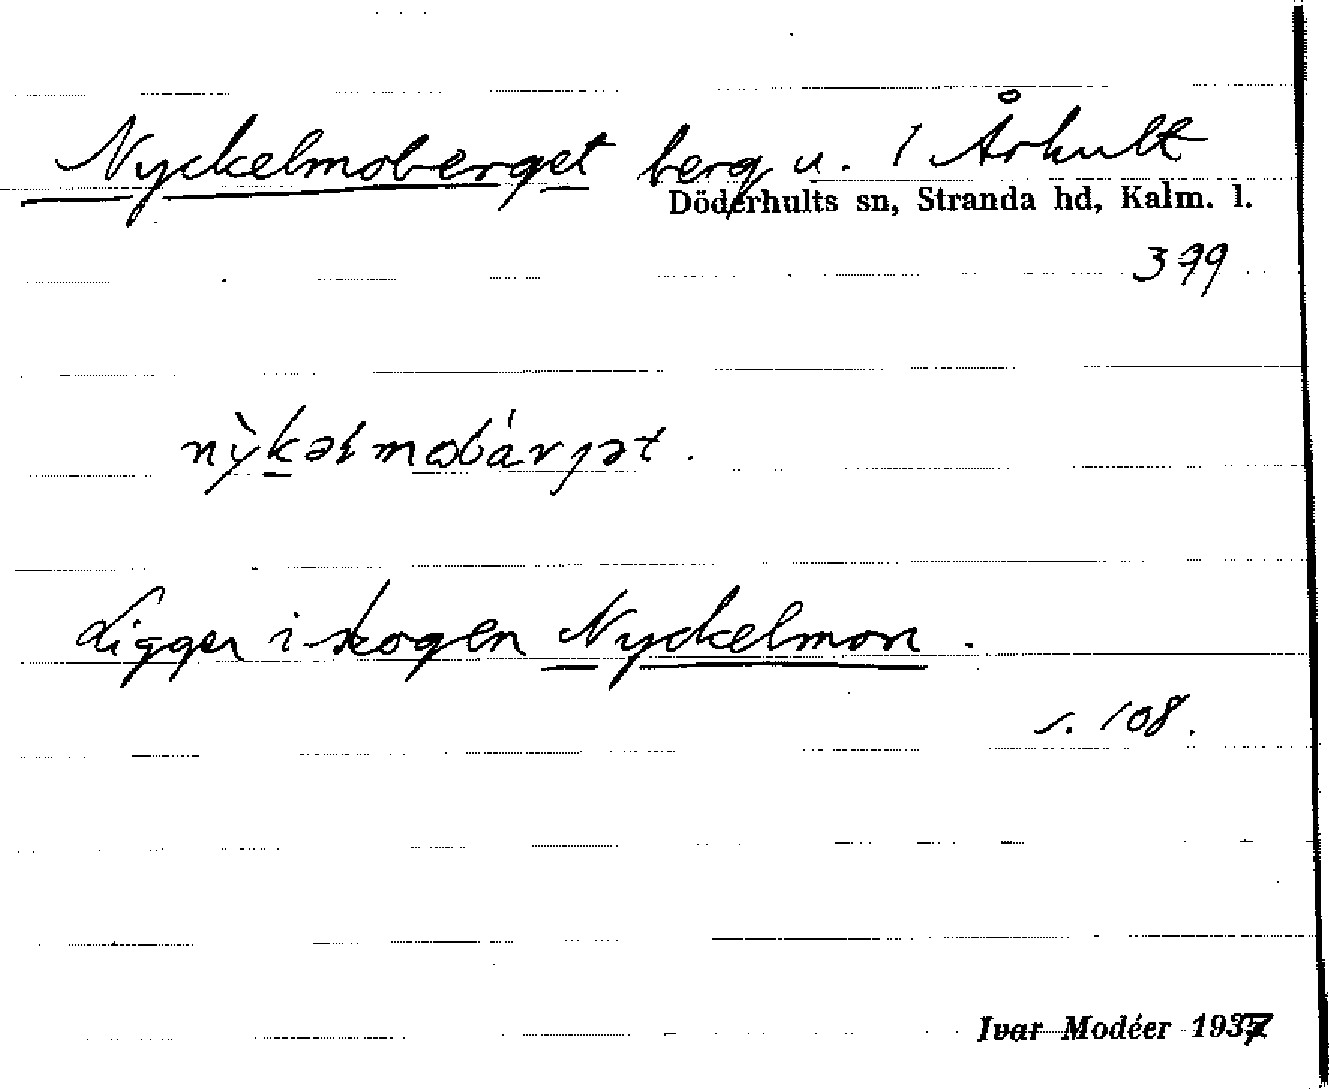 Nyckelmoberget berg u. 1 Århult
Döderhults sn, Stranda hd, Kalm. l.
399
nỳkəlmobárjət.
Ligger i skogen Nyckelmon.
s. 108.
Ivar Modéer 1937